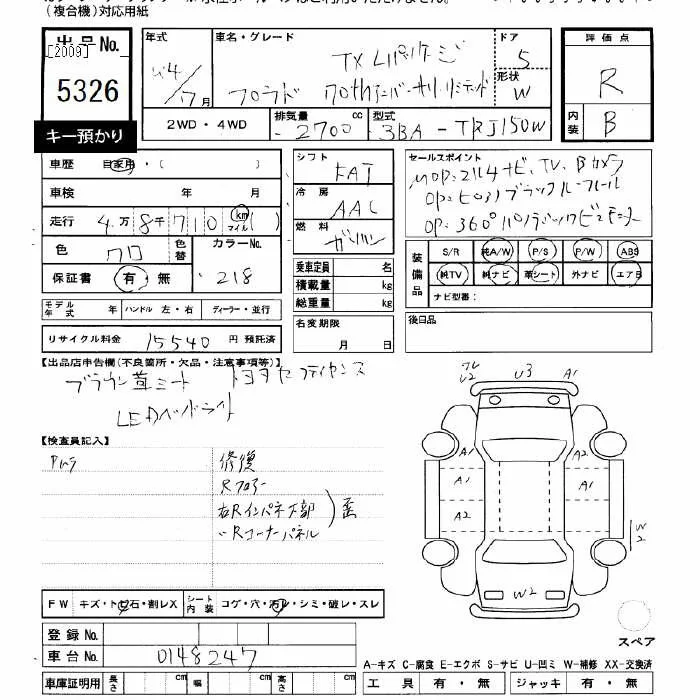 (複合機)対応用紙
出品No.
[2009]
5326
キー預かり
年式
R4/7月
車名・グレード
TX Lパッケージ
プラド 70thアニバーサリーリミテッド
ドア
5
形状
W
評価点
R
内装
B
2WD・4WD
排気量
2700cc
型式
3BA-TRJ150W
車歴 自家用・( )
車検 年 月
走行 4万8千710 km マイル ( )
色 クロ
色替
カラーNo.
218
保証書 有・無
モデル年式 年 ハンドル 左・右 ディーラー・並行
リサイクル料金 15540円 預託済
シフト
FAT
冷房
AAC
燃料
ガソリン
乗車定員 名
積載量 kg
総重量 kg
名変期限
月 日
セールスポイント
MOP:マルチナビ、TV、Bカメラ
OP:ヒロコブラックルーフレール
装備品
S/R 純A/W P/S P/W ABS
純TV 純ナビ 革シート 外ナビ エアB
ナビ型番:
後日品
【出品店申告欄(不良箇所・欠品・注意事項等)】
ブラウン革シート トヨタセーフティセンス
LEDヘッドライト
フレ U2 U3 A1
A1 A2
A1 A1
A2
W2
W2
スペア
【検査員記入】
修復
Rフロアー
右Rインパネ下部 歪
〃Rコーナーパネル
FW キズ・トビ石・割レX シート内装 コゲ・穴・汚レ・シミ・破レ・スレ
登録No.
車台No. 0148247
車庫証明用 長さ cm 幅 cm 高さ cm
A-キズ C-腐食 E-エクボ S-サビ U-凹ミ W-補修 XX-交換済
工具 有・無 ジャッキ 有・無